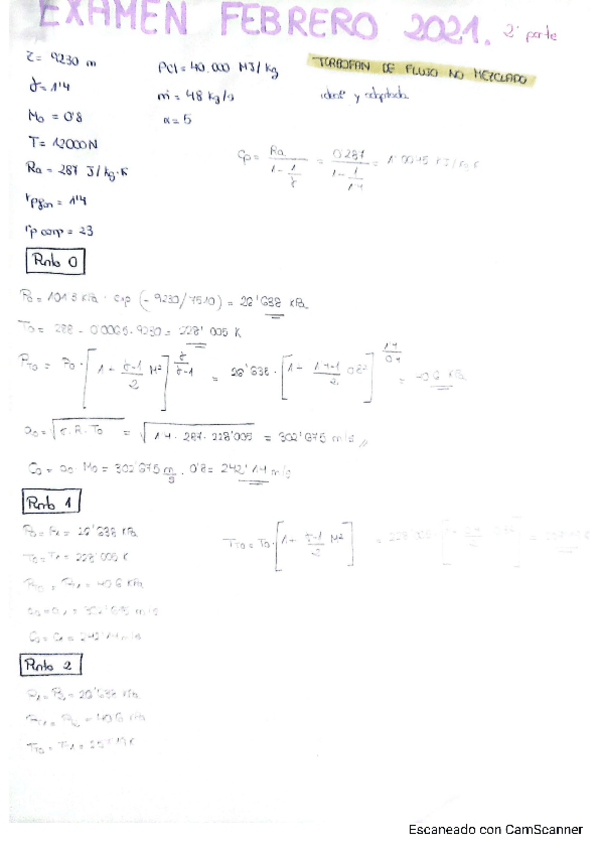 EXAMEN FEBRERO 2021. 2ª parte
z = 9230 m
γ = 1'4
M₀ = 0'8
T = 12000 N
Ra = 287 J/kg·K
rp fan = 1'4
rp comp = 23
PCI = 40.000 MJ/kg
ṁ = 48 kg/s
α = 5
TURBOFAN DE FLUJO NO MEZCLADO
ideal y adaptada
Cp = Ra / (1 - 1/γ) = 0'287 / (1 - 1/1'4) = 1'0045 KJ/kg·K
Pnto 0
P₀ = 101'3 kPa · exp (- 9230/7510) = 29'638 kPa
T₀ = 288 - 0'0065 · 9230 = 228'005 K
P_T0 = P₀ · [1 + (γ-1)/2 M²]^(γ/(γ-1)) = 29'638 · [1 + (1'4-1)/2 0'8²]^(1'4/0'4) = kPa
a₀ = √(γ·R·T₀) = √(1'4 · 287 · 228'005) = 302'675 m/s
C₀ = a₀ · M₀ = 302'675 m/s · 0'8 = 242'14 m/s
Pnto 1
P₀ = P₁ = 29'638 kPa
T₀ = T₁ = 228'005 K
kPa
a₀ = a₁ = 302'675 m/s
C₀ = C₁ = 242'14 m/s
T_T0 = T₀ · [1 + (γ-1)/2 M²] = 228'005 ·
Pnto 2
P₁ = P₂ = 29'638 kPa
kPa
T_T0 = T_T1 =
Escaneado con CamScanner